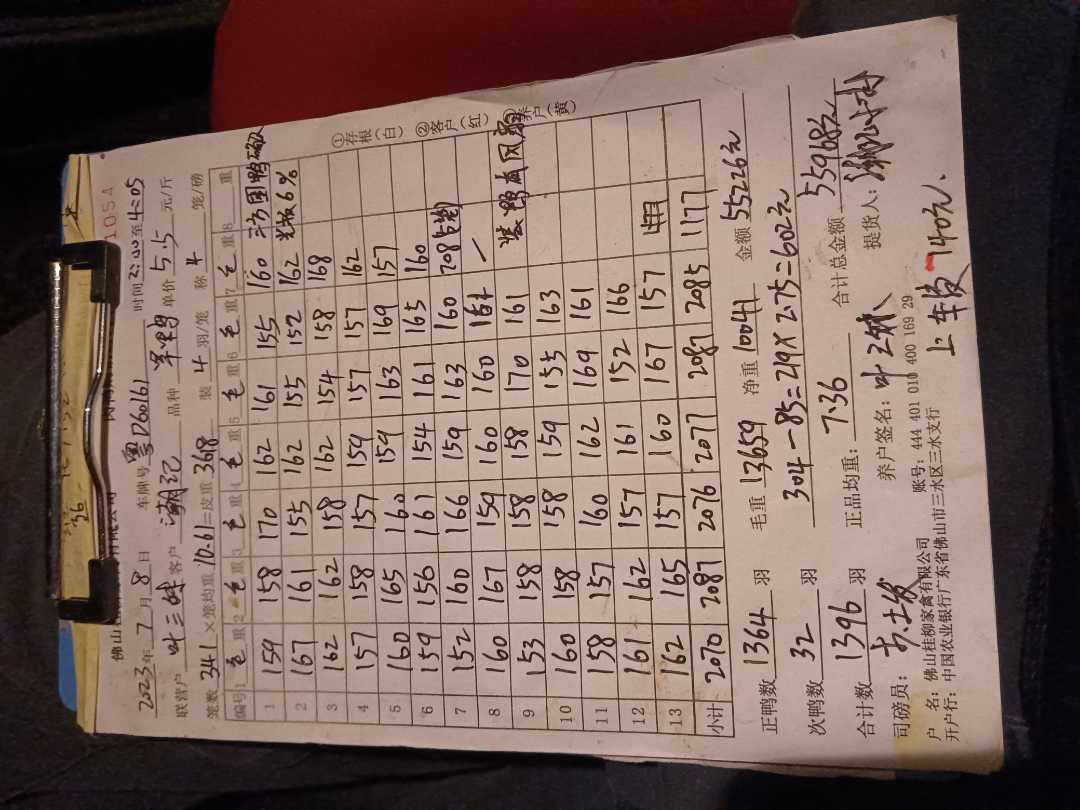 1054
佛山
2023年 7月 8日 车牌号 粤D60161 时间2:00至4:05
联营户 叶三妹 客户 潮记 品种 羊鸭 单价 5.5 元/斤
笼数 341 ×笼均重 10.61 =皮重 3618 装 4 羽/笼 称 4 笼/磅
编号 1毛重 2毛重 3毛重 4毛重 5毛重 6毛重 7毛重 8重
1 159 158 170 162 161 155 160
2 167 161 155 162 155 152 162 6%
3 162 162 158 162 154 158 168
4 157 158 157 159 157 157 162
5 160 165 160 159 163 169 157
6 159 156 161 154 161 165 160
7 152 160 166 159 163 160 208
8 160 167 159 160 160 164
9 153 158 158 158 170 161
10 160 158 158 159 155 163
11 158 157 160 162 169 161
12 161 162 157 161 152 166
13 162 165 157 160 167 157
小计 2070 2087 2076 2077 2087 2085 1177
①存根(白) ②客户(红) ③养户(黄)
正鸭数 1364 羽 毛重 13659 净重 10041 金额 55226元
次鸭数 32 羽 304-85=219×2.75=602元
合计数 1396 羽 正品均重: 7.36 合计总金额 55968元
司磅员: 养户签名: 提货人:
户 名: 佛山桂柳家禽有限公司 账号: 444 401 010 400 169 29
开户行: 中国农业银行广东省佛山市三水区三水支行
上车费 140元.